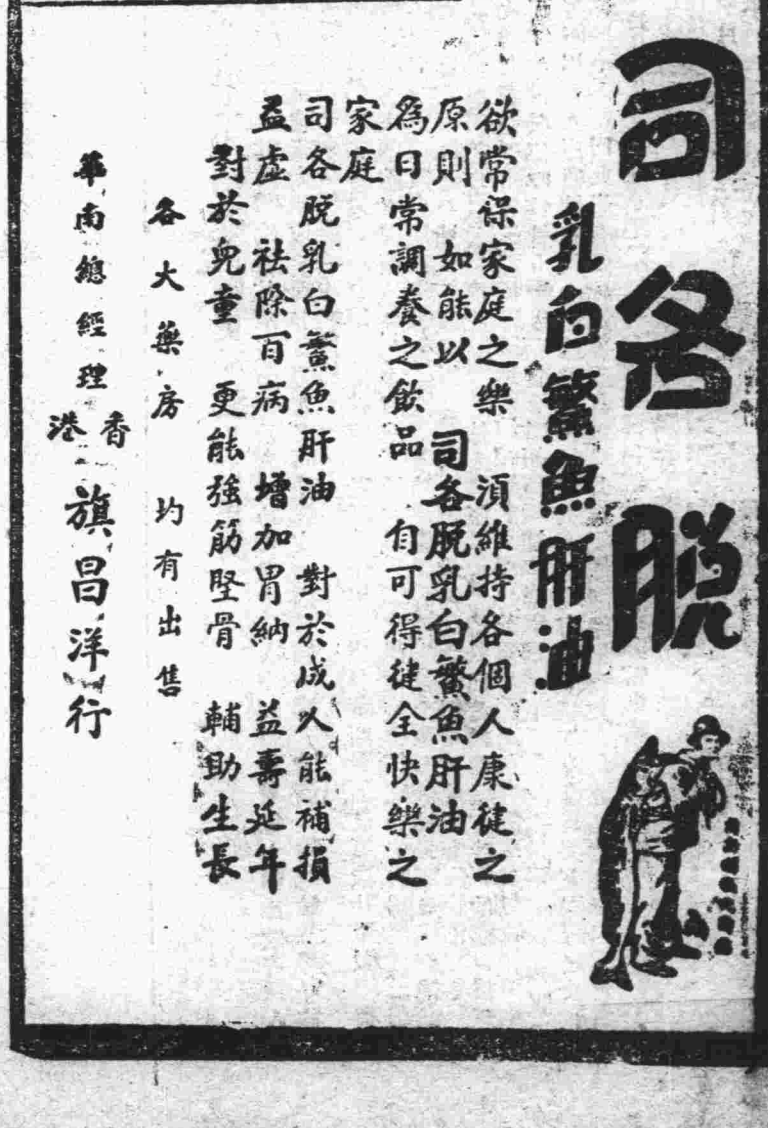 司各脫
乳白鰵魚肝油
欲常保家庭之樂 須維持各個人康健之
原則 如能以 司各脫乳白鰵魚肝油
為日常調養之飲品 自可得健全快樂之
家庭
司各脫乳白鰵魚肝油 對於成人能補損
益虛 祛除百病 增加胃納 益壽延年
對於兒童 更能強筋堅骨 輔助生長
各大藥房 均有出售
華南總經理 香港 旗昌洋行